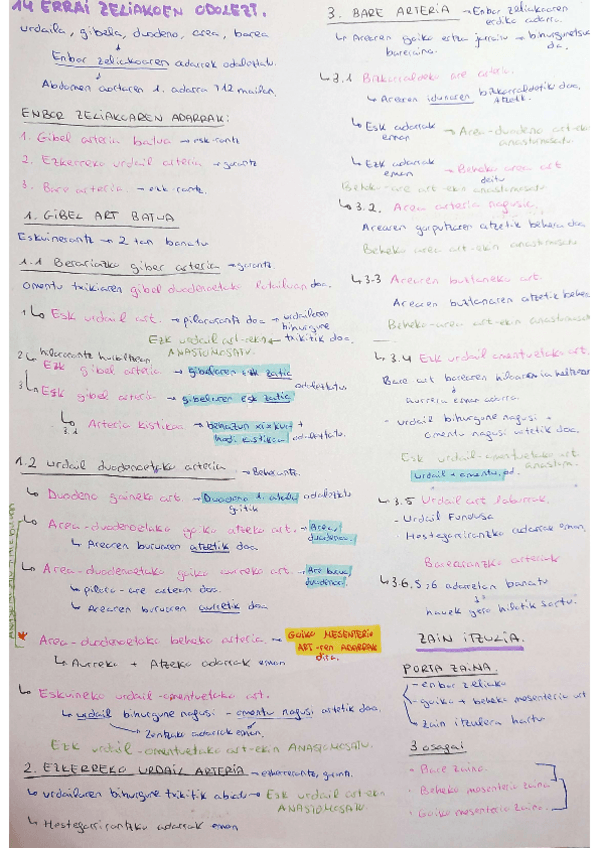 14 ERRAI ZELIAKOEN ODOLEZT.
urdaila, gibela, duodeno, area, barea
Enbor zeliakoaren adarrek odoleztatu.
Abdomen aortaren 1. adarra T12 mailan.
ENBOR ZELIAKOAREN ADARRAK:
1. Gibel arteria batua → esk-rantz
2. Ezkerreko urdail arteria → gorantz
3. Bare arteria. → ezk-rantz.
1. GIBEL ART BATUA
Eskuinerantz → 2 tan banatu
1.1 Berariazko gibel arteria → gorantz.
omentu txikiaren gibel duodenoetako lotailuan doa.
1 Esk urdail art. → pilororantz doa → urdailaren bihurgune txikitik doa.
Ezk urdail art-ekin ANASTOMOSATU.
2 hilorantz hurbiltzean
Ezk gibel arteria → gibelaren ezk zatia odoleztatu
3 Esk gibel arteria → gibelaren esk zatia
3.1 Arteria kistikoa → behazun xixkuri + hodi kistikoa odoleztatu.
1.2 urdail duodenoetako arteria → Beherantz.
Duodeno gaineko art. → Duodeno 1. atala odoleztatu
gibeletik
Area-duodenoetako goiko atzeko art. → Area, duodenoa.
Arearen buruaren atzetik doa.
Area-duodenoetako goiko aurreko art. → Are burua, duodenoa.
piloro-are artean doa.
Arearen buruaren aurretik doa
* Area-duodenoetako beheko arteria → GOIKO MESENTERIO ART-ren ADARRAK dira.
Aurreko + Atzeko adarrak eman
Eskuineko urdail-omentuetako art.
urdail bihurgune nagusi - omentu nagusi artetik doa.
Zentzuko adarrak eman.
Ezk urdail-omentuetako art-ekin ANASTOMOSATU.
2. EZKERREKO URDAIL ARTERIA → ezkerrerantz, gorantz.
urdailaren bihurgune txikitik abiatu → Esk urdail art-ekin ANASTOMOSATU.
Hestegorrirantzko adarrak eman
3. BARE ARTERIA → Enbor zeliakoaren ezkerreko adarra.
Arearen goiko ertza jarraitu → bihurgunetsua da.
bareraino.
3.1 Bizkarraldeko are arteria.
Arearen idunaren bizkarraldetik doa, atzetik.
Esk adarrak eman → Area-duodeno art-ekin anastomosatu
Ezk adarrak eman → Beheko area art deitu
Beheko-are art-ekin anastomosatu
3.2. Area arteria nagusia.
Arearen gorputzaren atzetik behera doa
Beheko area art-ekin anastomosatu
3.3 Arearen buztaneko art.
Arearen buztanaren atzetik behera
Beheko-area art-ekin anastomosatu
3.4 Ezk urdail omentuetako art.
Bare art barearen hiloaren heltzean
aurrera eman adarra.
- urdail bihurgune nagusi + omentu nagusi artetik doa.
Esk urdail-omentuetako art-ekin anastom.
urdail + omentu od.
3.5 Urdail art laburrak.
- Urdail Fundusa
- Hestegorrirantzko adarrak eman.
Barerantzko arteriak
3.6, 5, 6 adarretan banatu
hauek gero hilotik sartu.
ZAIN ITZULIA.
PORTA ZAINA.
- enbor zeliako
- goiko + beheko mesenterio art
- zain itzulera hartu
3 osagai
• Bare zaina.
• Beheko mesenterio zaina
• Goiko mesenterio zaina.